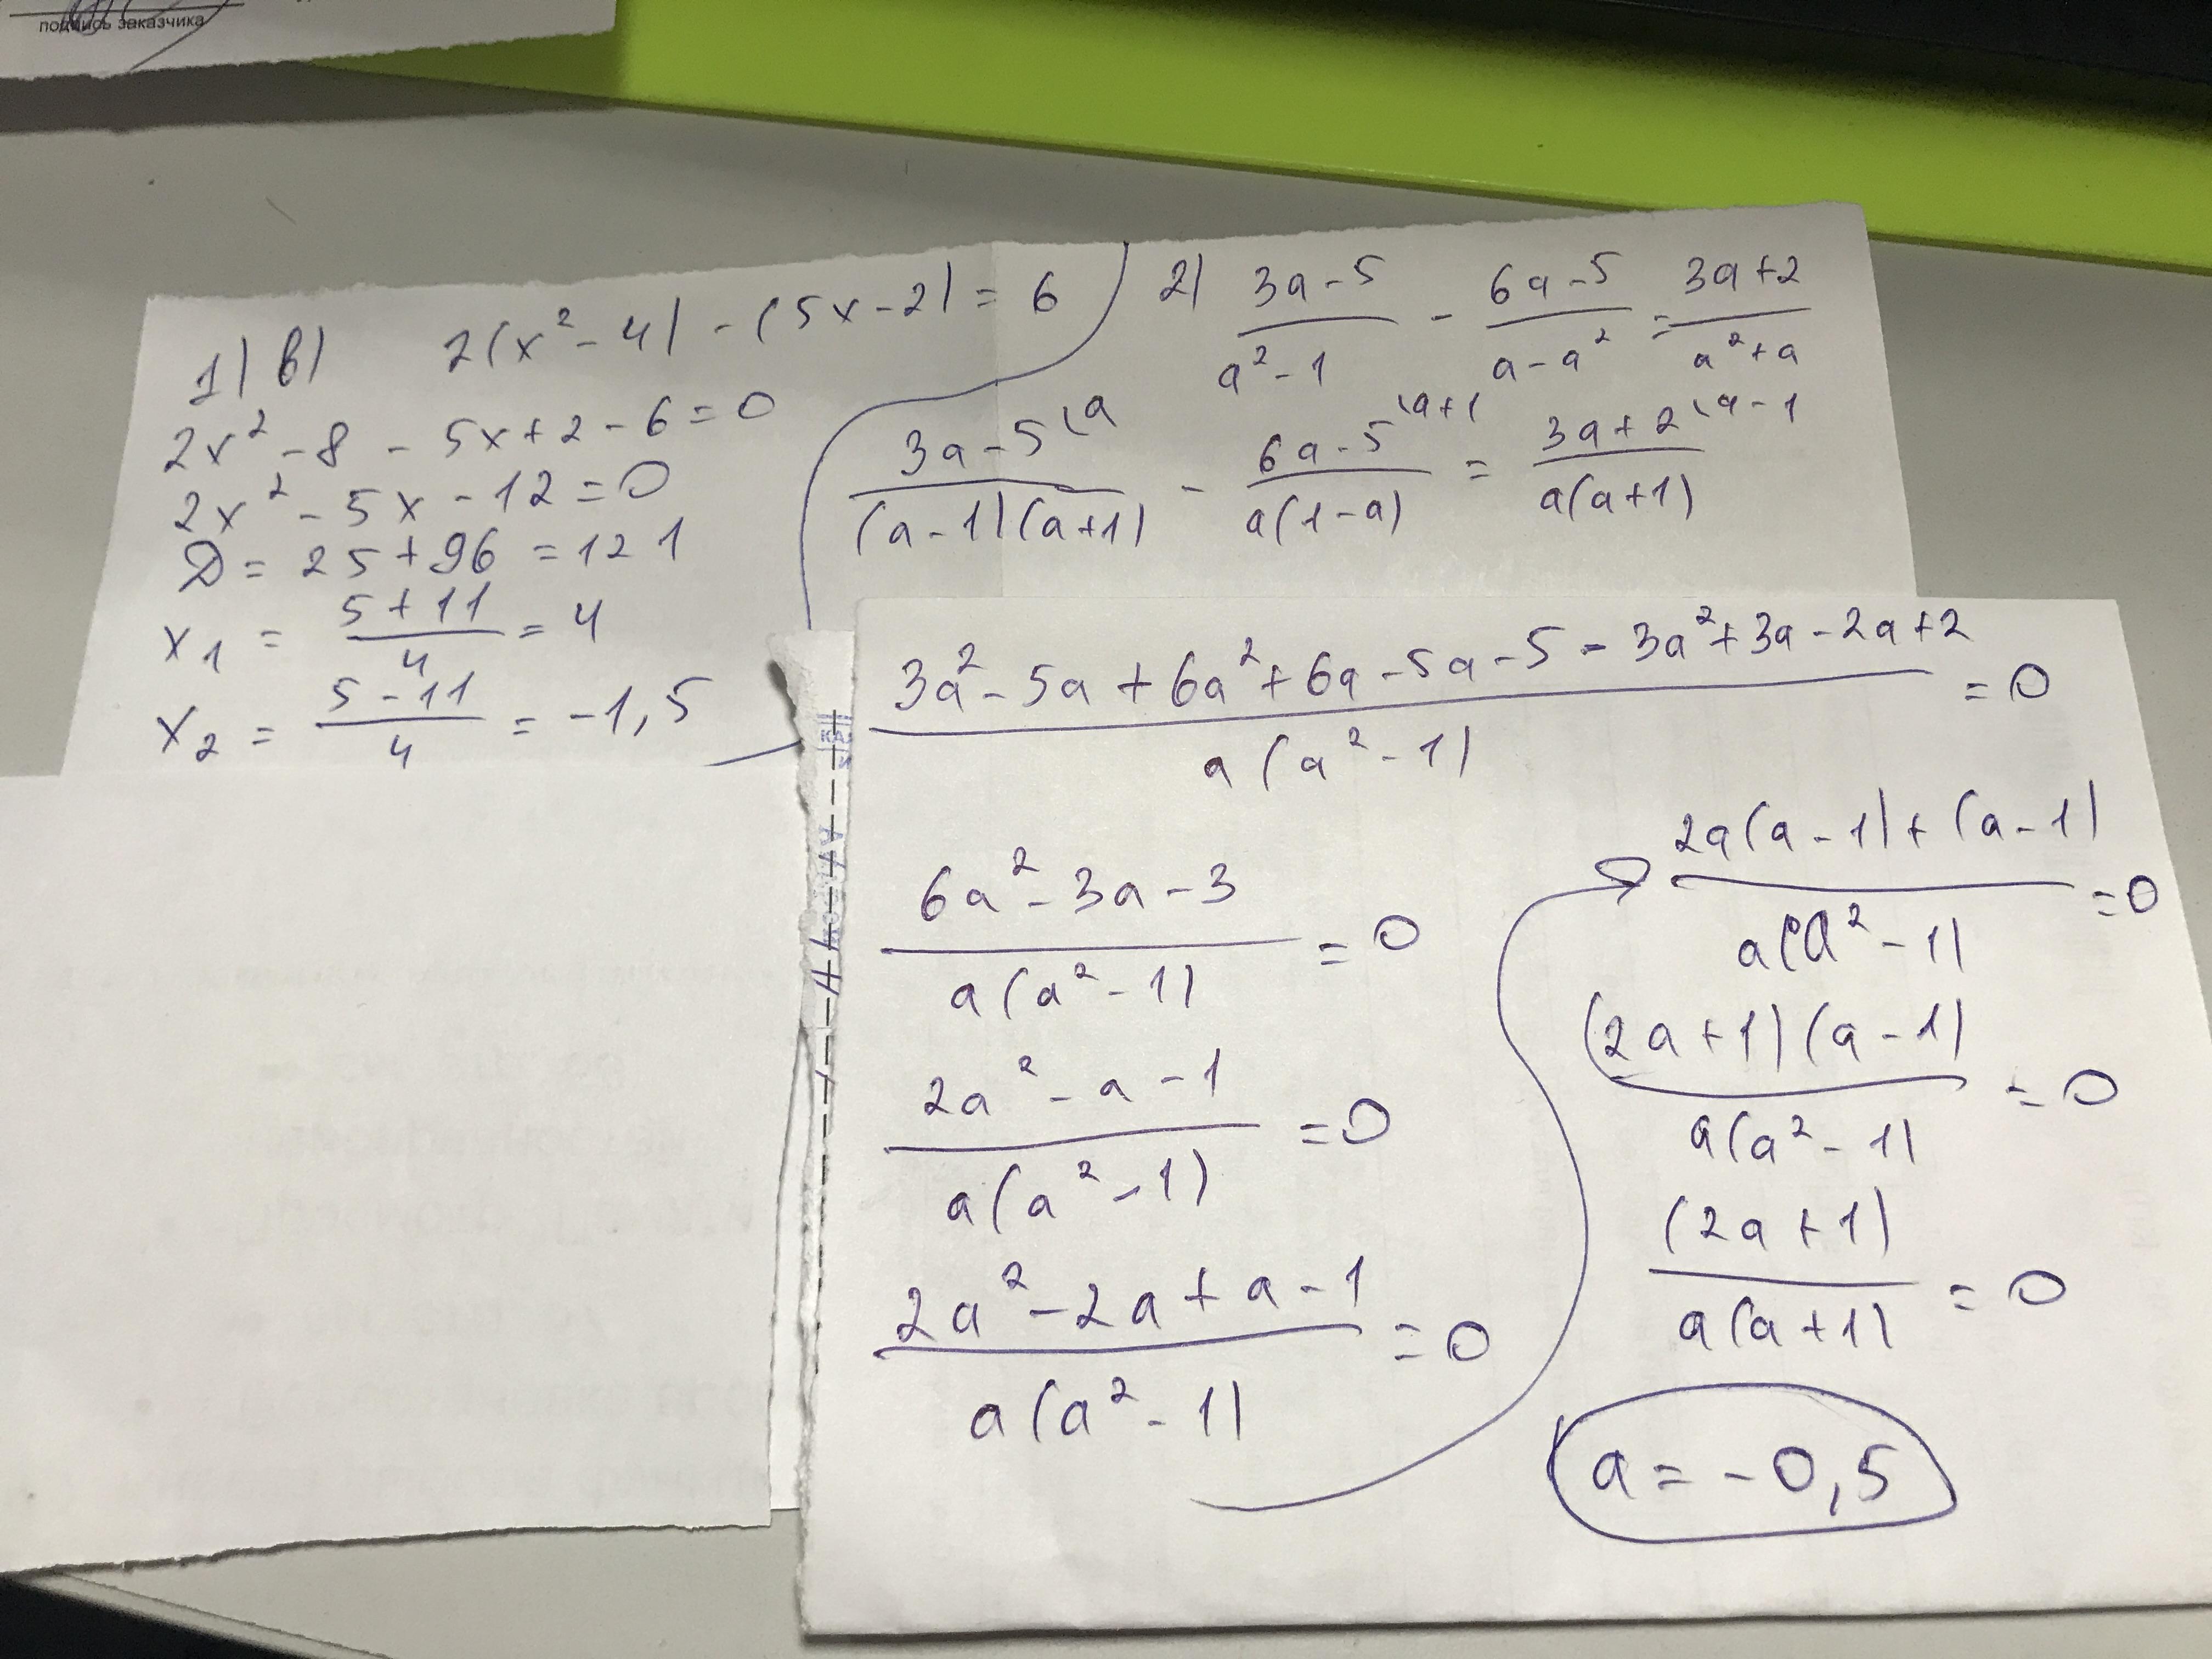 подпись заказчика
1) в) 2(x² - 4) - (5x - 2) = 6
2x² - 8 - 5x + 2 - 6 = 0
2x² - 5x - 12 = 0
D = 25 + 96 = 121
x₁ = (5 + 11)/4 = 4
x₂ = (5 - 11)/4 = -1,5
2) (3a - 5)/(a² - 1) - (6a - 5)/(a - a²) = (3a + 2)/(a² + a)
(3a - 5)\a/((a - 1)(a + 1)) - (6a - 5)\a+1/(a(1 - a)) = (3a + 2)\a-1/(a(a + 1))
(3a² - 5a + 6a² + 6a - 5a - 5 - 3a² + 3a - 2a + 2)/(a(a² - 1)) = 0
(6a² - 3a - 3)/(a(a² - 1)) = 0
(2a² - a - 1)/(a(a² - 1)) = 0
(2a² - 2a + a - 1)/(a(a² - 1)) = 0
(2a(a - 1) + (a - 1))/(a(a² - 1)) = 0
((2a + 1)(a - 1))/(a(a² - 1)) = 0
(2a + 1)/(a(a + 1)) = 0
a = -0,5